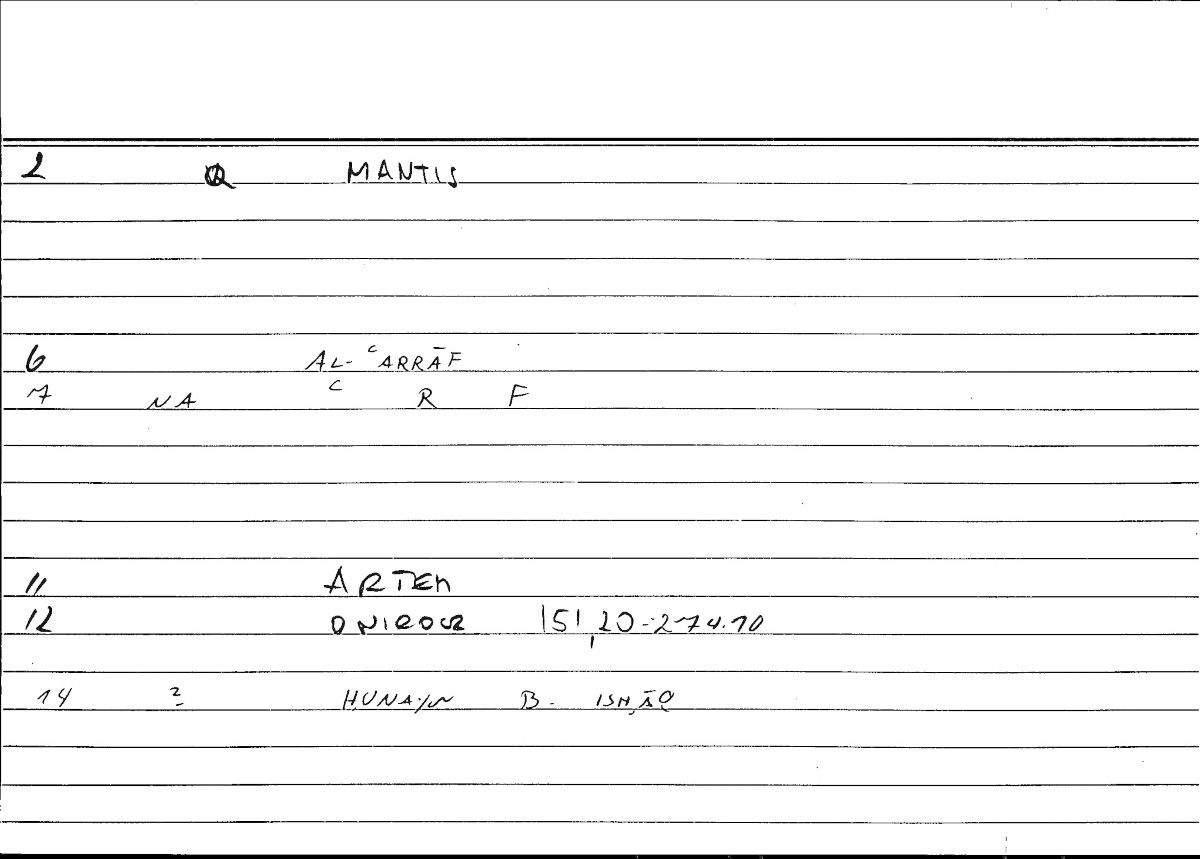 2 MANTIS
6 AL-ʿARRĀF
7 NA ʿ R F
11 ARTEM
12 ONIROCR 151,20-274.10
14 2 ḤUNAYN B. ISḤĀQ